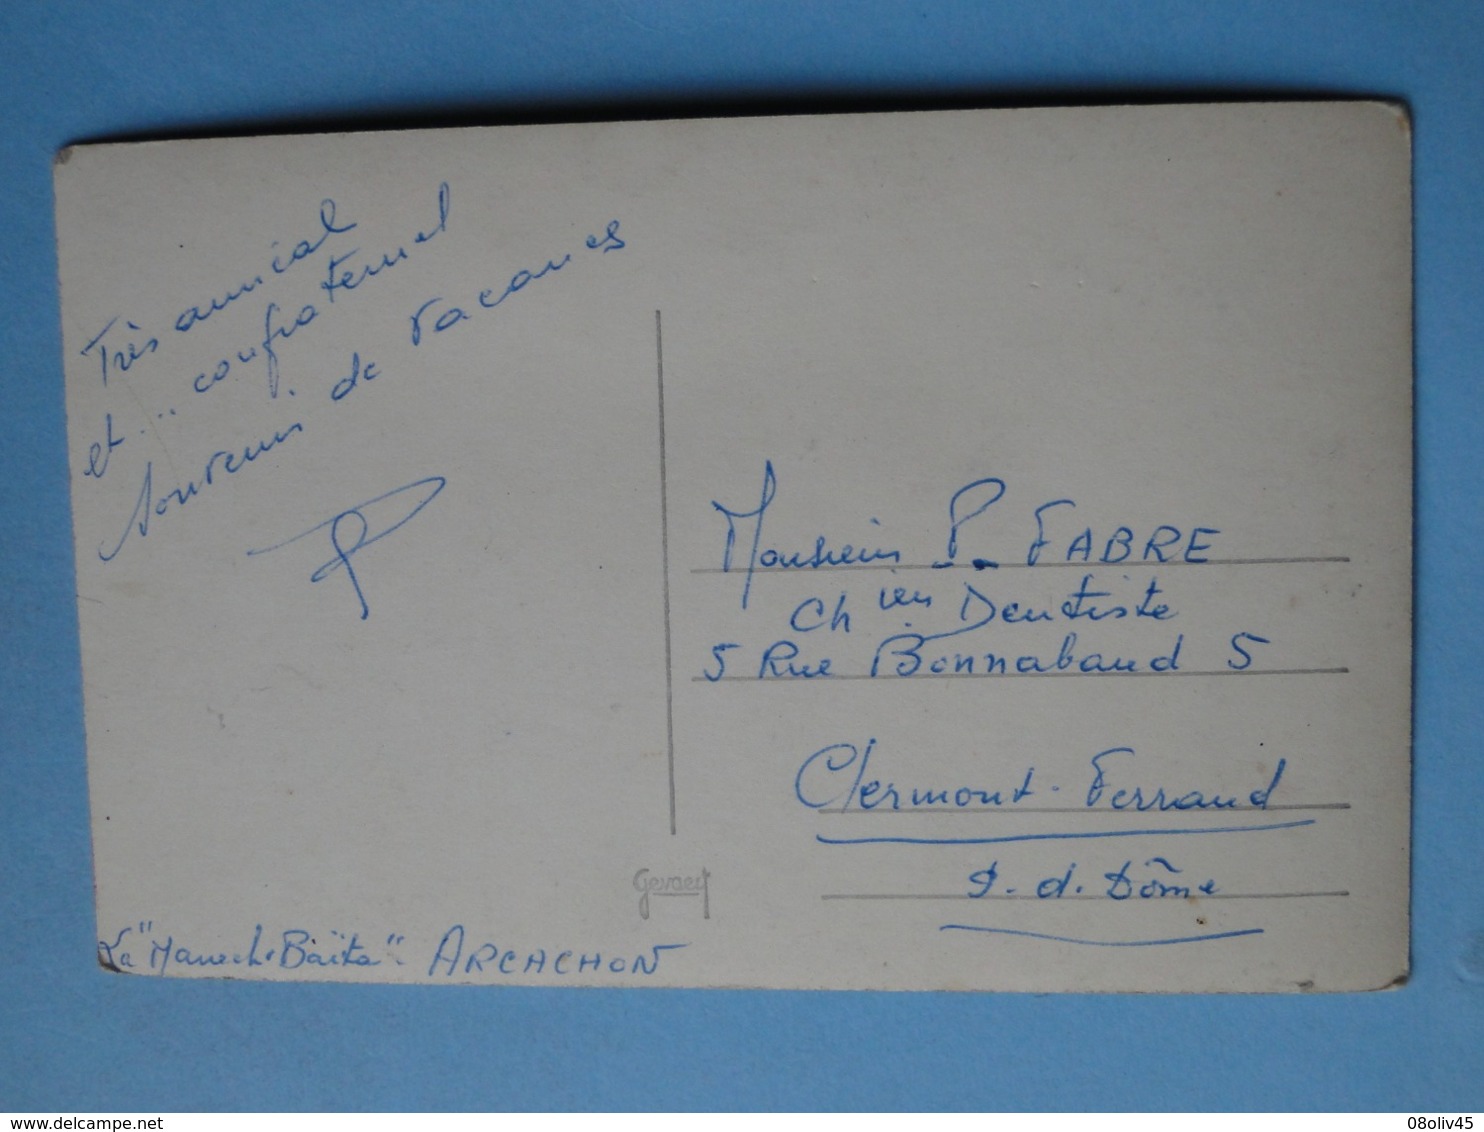 Très amical
et .. confraternel
souvenir de vacances
Monsieur P. FABRE
Ch ien Dentiste
5 Rue Bonnabaud 5
Clermont-Ferrand
P. d. Dôme
Gevaert
La " Baïta". ARCACHON
delcampe.net
08oliv45